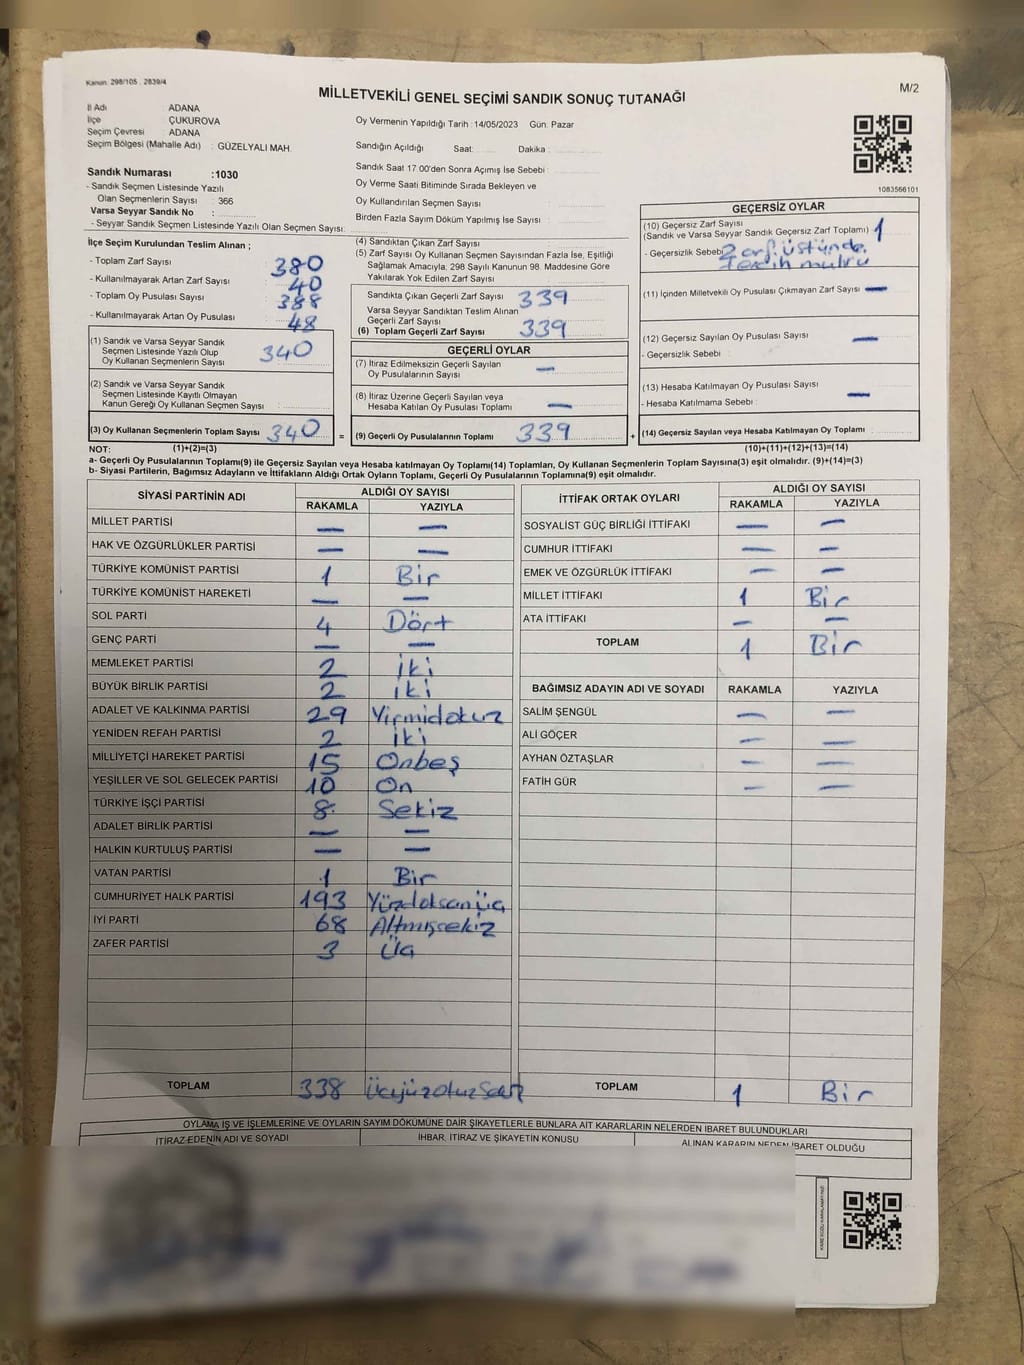 Kanun: 298/105 . 2839/4
M/2
MİLLETVEKİLİ GENEL SEÇİMİ SANDIK SONUÇ TUTANAĞI
İl Adı : ADANA
İlçe : ÇUKUROVA
Seçim Çevresi : ADANA
Seçim Bölgesi (Mahalle Adı) : GÜZELYALI MAH.
Sandık Numarası :1030
- Sandık Seçmen Listesinde Yazılı
Olan Seçmenlerin Sayısı : 366
Varsa Seyyar Sandık No :
- Seyyar Sandık Seçmen Listesinde Yazılı Olan Seçmen Sayısı:
Oy Vermenin Yapıldığı Tarih : 14/05/2023 Gün: Pazar
Sandığın Açıldığı Saat: Dakika :
Sandık Saat 17:00'den Sonra Açımış İse Sebebi :
Oy Verme Saati Bitiminde Sırada Bekleyen ve
Oy Kullandırılan Seçmen Sayısı :
Birden Fazla Sayım Döküm Yapılmış İse Sayısı :
1083566101
İlçe Seçim Kurulundan Teslim Alınan ;
- Toplam Zarf Sayısı : 380
- Kullanılmayarak Artan Zarf Sayısı : 40
- Toplam Oy Pusulası Sayısı : 388
- Kullanılmayarak Artan Oy Pusulası : 48
(1) Sandık ve Varsa Seyyar Sandık
Seçmen Listesinde Yazılı Olup
Oy Kullanan Seçmenlerin Sayısı : 340
(2) Sandık ve Varsa Seyyar Sandık
Seçmen Listesinde Kayıtlı Olmayan
Kanun Gereği Oy Kullanan Seçmen Sayısı :
(3) Oy Kullanan Seçmenlerin Toplam Sayısı : 340 =
(4) Sandıktan Çıkan Zarf Sayısı :
(5) Zarf Sayısı Oy Kullanan Seçmen Sayısından Fazla İse, Eşitliği
Sağlamak Amacıyla, 298 Sayılı Kanunun 98. Maddesine Göre
Yakılarak Yok Edilen Zarf Sayısı :
Sandıkta Çıkan Geçerli Zarf Sayısı : 339
Varsa Seyyar Sandıktan Teslim Alınan
Geçerli Zarf Sayısı :
(6) Toplam Geçerli Zarf Sayısı : 339
GEÇERLİ OYLAR
(7) İtiraz Edilmeksizin Geçerli Sayılan
Oy Pusulalarının Sayısı : —
(8) İtiraz Üzerine Geçerli Sayılan veya
Hesaba Katılan Oy Pusulası Toplamı : —
(9) Geçerli Oy Pusulalarının Toplamı : 339 +
GEÇERSİZ OYLAR
(10) Geçersiz Zarf Sayısı
(Sandık ve Varsa Seyyar Sandık Geçersiz Zarf Toplamı) : 1
- Geçersizlik Sebebi : Zarf üstünde
Tercih mührü
(11) İçinden Milletvekili Oy Pusulası Çıkmayan Zarf Sayısı : —
(12) Geçersiz Sayılan Oy Pusulası Sayısı : —
- Geçersizlik Sebebi :
(13) Hesaba Katılmayan Oy Pusulası Sayısı : —
- Hesaba Katılmama Sebebi :
(14) Geçersiz Sayılan veya Hesaba Katılmayan Oy Toplamı :
NOT: (1)+(2)=(3) (10)+(11)+(12)+(13)=(14)
a- Geçerli Oy Pusulalarının Toplamı(9) ile Geçersiz Sayılan veya Hesaba katılmayan Oy Toplamı(14) Toplamları, Oy Kullanan Seçmenlerin Toplam Sayısına(3) eşit olmalıdır. (9)+(14)=(3)
b- Siyasi Partilerin, Bağımsız Adayların ve İttifakların Aldığı Ortak Oyların Toplamı, Geçerli Oy Pusulalarının Toplamına(9) eşit olmalıdır.
SİYASİ PARTİNİN ADI ALDIĞI OY SAYISI
RAKAMLA YAZIYLA
MİLLET PARTİSİ — —
HAK VE ÖZGÜRLÜKLER PARTİSİ — —
TÜRKİYE KOMÜNİST PARTİSİ 1 Bir
TÜRKİYE KOMÜNİST HAREKETİ — —
SOL PARTİ 4 Dört
GENÇ PARTİ — —
MEMLEKET PARTİSİ 2 iki
BÜYÜK BİRLİK PARTİSİ 2 iki
ADALET VE KALKINMA PARTİSİ 29 Yirmidokuz
YENİDEN REFAH PARTİSİ 2 iki
MİLLİYETÇİ HAREKET PARTİSİ 15 Onbeş
YEŞİLLER VE SOL GELECEK PARTİSİ 10 On
TÜRKİYE İŞÇİ PARTİSİ 8 Sekiz
ADALET BİRLİK PARTİSİ — —
HALKIN KURTULUŞ PARTİSİ — —
VATAN PARTİSİ 1 Bir
CUMHURİYET HALK PARTİSİ 193 Yüzdoksanüç
İYİ PARTİ 68 Altmışsekiz
ZAFER PARTİSİ 3 Üç
TOPLAM 338 Üçyüzotuzsekiz
İTTİFAK ORTAK OYLARI ALDIĞI OY SAYISI
RAKAMLA YAZIYLA
SOSYALİST GÜÇ BİRLİĞİ İTTİFAKI — —
CUMHUR İTTİFAKI — —
EMEK VE ÖZGÜRLÜK İTTİFAKI — —
MİLLET İTTİFAKI 1 Bir
ATA İTTİFAKI — —
TOPLAM 1 Bir
BAĞIMSIZ ADAYIN ADI VE SOYADI RAKAMLA YAZIYLA
SALİM ŞENGÜL — —
ALİ GÖÇER — —
AYHAN ÖZTAŞLAR — —
FATİH GÜR — —
TOPLAM 1 Bir
OYLAMA İŞ VE İŞLEMLERİNE VE OYLARIN SAYIM DÖKÜMÜNE DAİR ŞİKAYETLERLE BUNLARA AİT KARARLARIN NELERDEN İBARET BULUNDUKLARI
İTİRAZ EDENİN ADI VE SOYADI İHBAR, İTİRAZ VE ŞİKAYETİN KONUSU ALINAN KARARIN NEDEN İBARET OLDUĞU